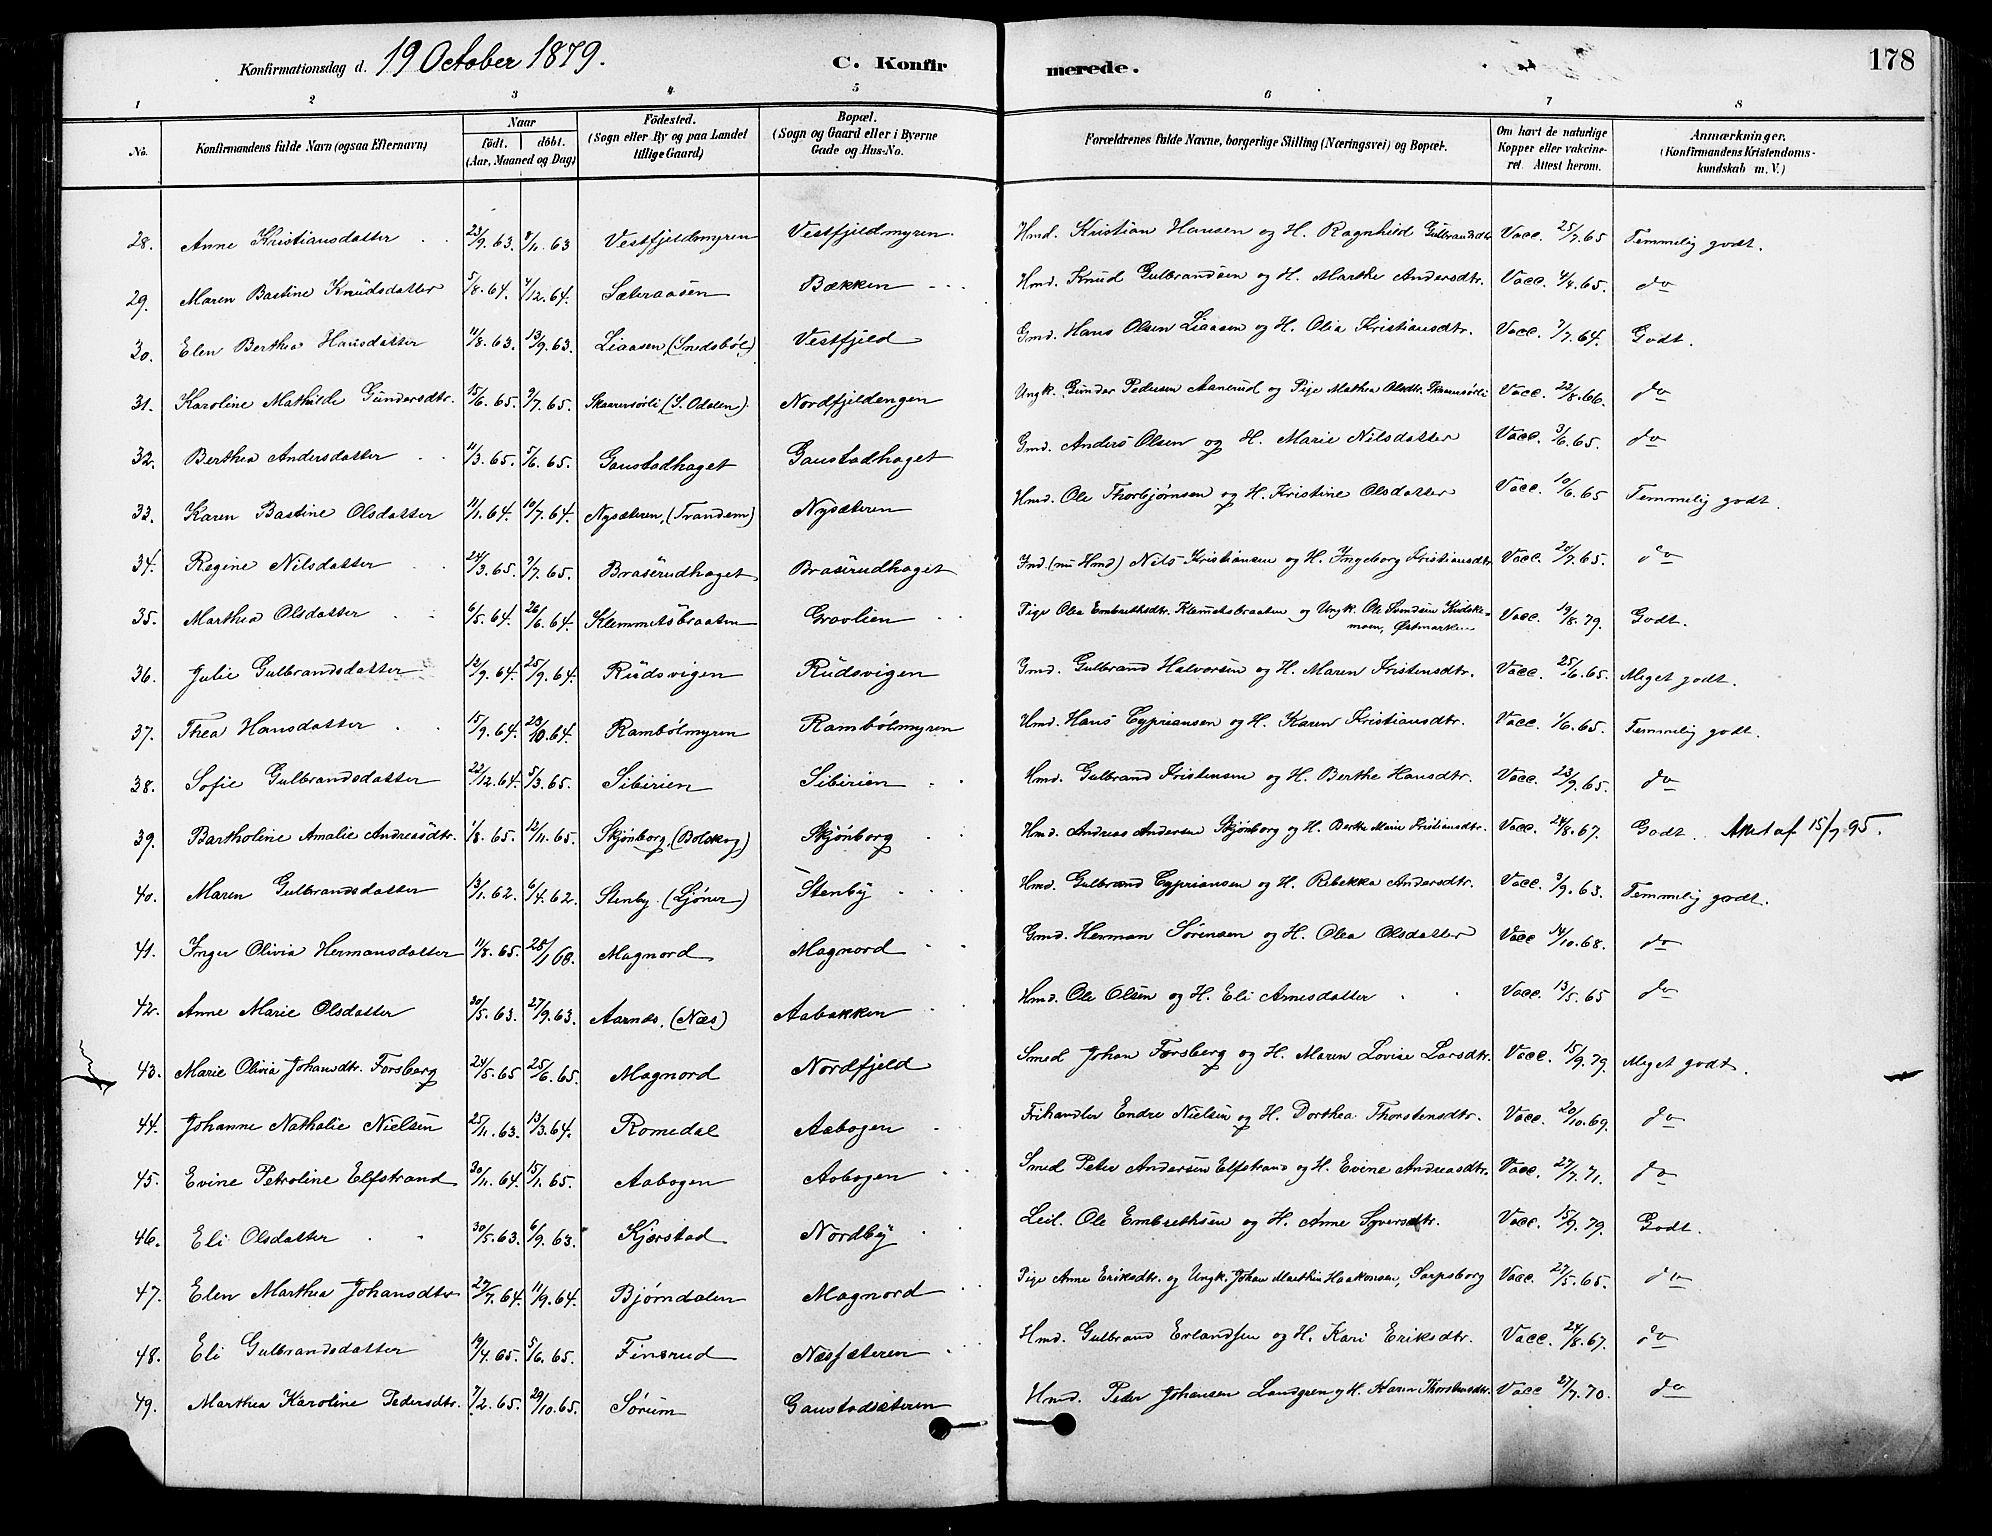 Konfirmationsdag d. 19 October 1879. C. Konfirmerede. 178
1 2 3 4 5 6 7 8
No. Konfirmandens fulde Navn (ogsaa Efternavn) Naar födt. döbt. (Aar, Maaned og Dag) Födested. (Sogn eller By og paa Landet tillige Gaard) Bopæl. (Sogn og Gaard eller i Byerne Gade og Hus-No. Forældrenes fulde Navne, borgerlige Stilling (Næringsvei) og Bopæl. Om havt de naturlige Kopper eller vakcineret. Attest herom. Anmærkninger. (Konfirmandens Kristendomskundskab m. V.)
28. Anne Kristiansdatter 23/9.63. 8/11.63 Vestfjeldmyren Vestfjeldmyren. Hmd. Kristian Hansen og H. Ragnhild Gulbrandsdtr Vacc. 25/7.65 Temmelig godt.
29. Maren Bastine Knudsdatter 5/8.64. 4/12.64. Sæteraasen Bækken Hmd. Knud Gulbrandsen og H. Marthe Andersdtr. Vacc. 4/4.65. do
30. Elen Berthea Hansdatter 11/8.63. 13/9.63. Liaasen (Smedsböl) Vestfjeld Gmd. Hans Olsen Liaasen og H. Olia Kristiansdtr. Vacc. 7/7.64. Godt.
31. Karoline Mathilde Gundersdtr. 15/6.65. 9/7.65. Skaarersörli (S. Odalen). Nordfjeldengen Ungk. Gunder Pedersen Aanerud og Pige Mathea Olsdtr. Skaarersörli Vacc. 22/8.66. do
32. Berthea Andersdatter 11/3.65. 5/6.65. Gaustadhaget Gaustadhaget Gmd. Anders Olsen og H. Marie Nilsdatter Vacc. 3/6.65. do
33. Karen Bastine Olsdatter 11/1.64. 10/7.64. Nysæteren, (Trandem) Nysæteren Hmd. Ole Thorbjørnsen og H. Kristine Olsdatter Vacc. 10/6.65 Temmelig godt.
34. Regine Nilsdatter 24/3.65. 9/7.65. Braserudhaget Braserudhaget Ind. (nu Hmd) Nils Kristiansen og H. Ingeborg Kristiansdtr Vacc. 20/7.65. do
35. Marthea Olsdatter 6/5.64. 26/6.64. Klemmetsbraaten Gravlien Pige Olea Embrethsdtr. Klemetsbraaten og Ungk. Ole Simensen Kirkemoen, Østmarken Vacc. 19/8.79. Godt.
36. Julie Gulbrandsdatter 12/9.64. 25/9.64. Rudsvigen Rudsvigen Gmd. Gulbrand Halvorsen og H. Maren Kristensdtr. Vacc. 25/6.65. Meget godt.
37. Thea Hansdatter 15/9.64. 23/10.64. Rambölmyren Rambölmyren Hmd. Hans Cypriansen og H. Karen Kristiansdtr. Vacc. 1/6.65. Temmelig godt.
38. Sofie Gulbrandsdatter 22/12.64. 5/3.65. Sibirien Sibirien Hmd. Gulbrand Kristensen og H. Berthe Hansdtr. Vacc. 23/9.65. do
39. Bartholine Amalie Andreasdtr. 1/8.65. 12/11.65. Skjönborg, (Bolskog) Skjönborg Hmd. Andreas Andersen Skjönborg og H. Berthe Marie Kristiansdtr. Vacc. 24/8.67. Godt. Attest af 15/7 95.
40. Maren Gulbrandsdatter 13/1.62. 6/4.62. Stenby. (Ljöner) Stenby Hmd. Gulbrand Cypriansen og H. Rebekka Andersdtr. Vacc. 3/9.63. Temmelig godt.
41. Inger Olivia Hermansdatter 11/8.65. 28/1 68. Magnord Magnord Gmd. Herman Sörensen og H. Olea Olsdatter Vacc 14/10.68. do
42. Anne Marie Olsdatter 30/5.63. 27/9.63. Aarnæs. (Næs) Aabakken Hmd. Ole Olsen og H. Eli Arnesdatter Vacc. 13/5.65 do
43. Marie Olivia Johansdtr. Forsberg 24/5.65 25/6.65. Magnord Nordfjeld Smed Johan Forsberg og H. Maren Lovise Larsdtr. Vacc. 15/9.79. Meget godt.
44. Johanne Nathalie Nielsen 25/11.63. 13/3.64. Romedal Aabogen Frihandler Endre Nielsen og H. Dorthea Thorstensdtr. Vacc. 20/10.69. do
45. Evine Petroline Elfstrand 30/11.64. 15/1.65. Aabogen Aabogen Smed Peter Andersen Elfstrand og H. Evine Andreasdtr. Vacc. 27/7.71. do
46. Eli Olsdatter 30/5.63. 6/9.63. Kjerstad Nordby Leil. Ole Embrethsen og H. Anne Syversdtr. Vacc. 15/9.79. Godt.
47. Elen Marthea Johansdtr 27/7.64. 11/9.64. Bjørndalen Magnord Pige Anne Eriksdtr. og Ungk. Johan Marthin Haakonsen, Sarpsborg Vacc. 27/5.65. do
48. Eli Gulbrandsdatter 19/4.65. 5/6.65. Finsrud Næssæteren Hmd. Gulbrand Erlandsen og H. Kari Eriksdtr. Vacc. 24/8.67. do
49. Marthea Karoline Pedersdtr. 7/2.65. 29/10.65. Sörum Gaustadsæteren Hmd. Peter Johansen Landgren og H. Karen Thorstensdtr. Vacc 27/7.70. do